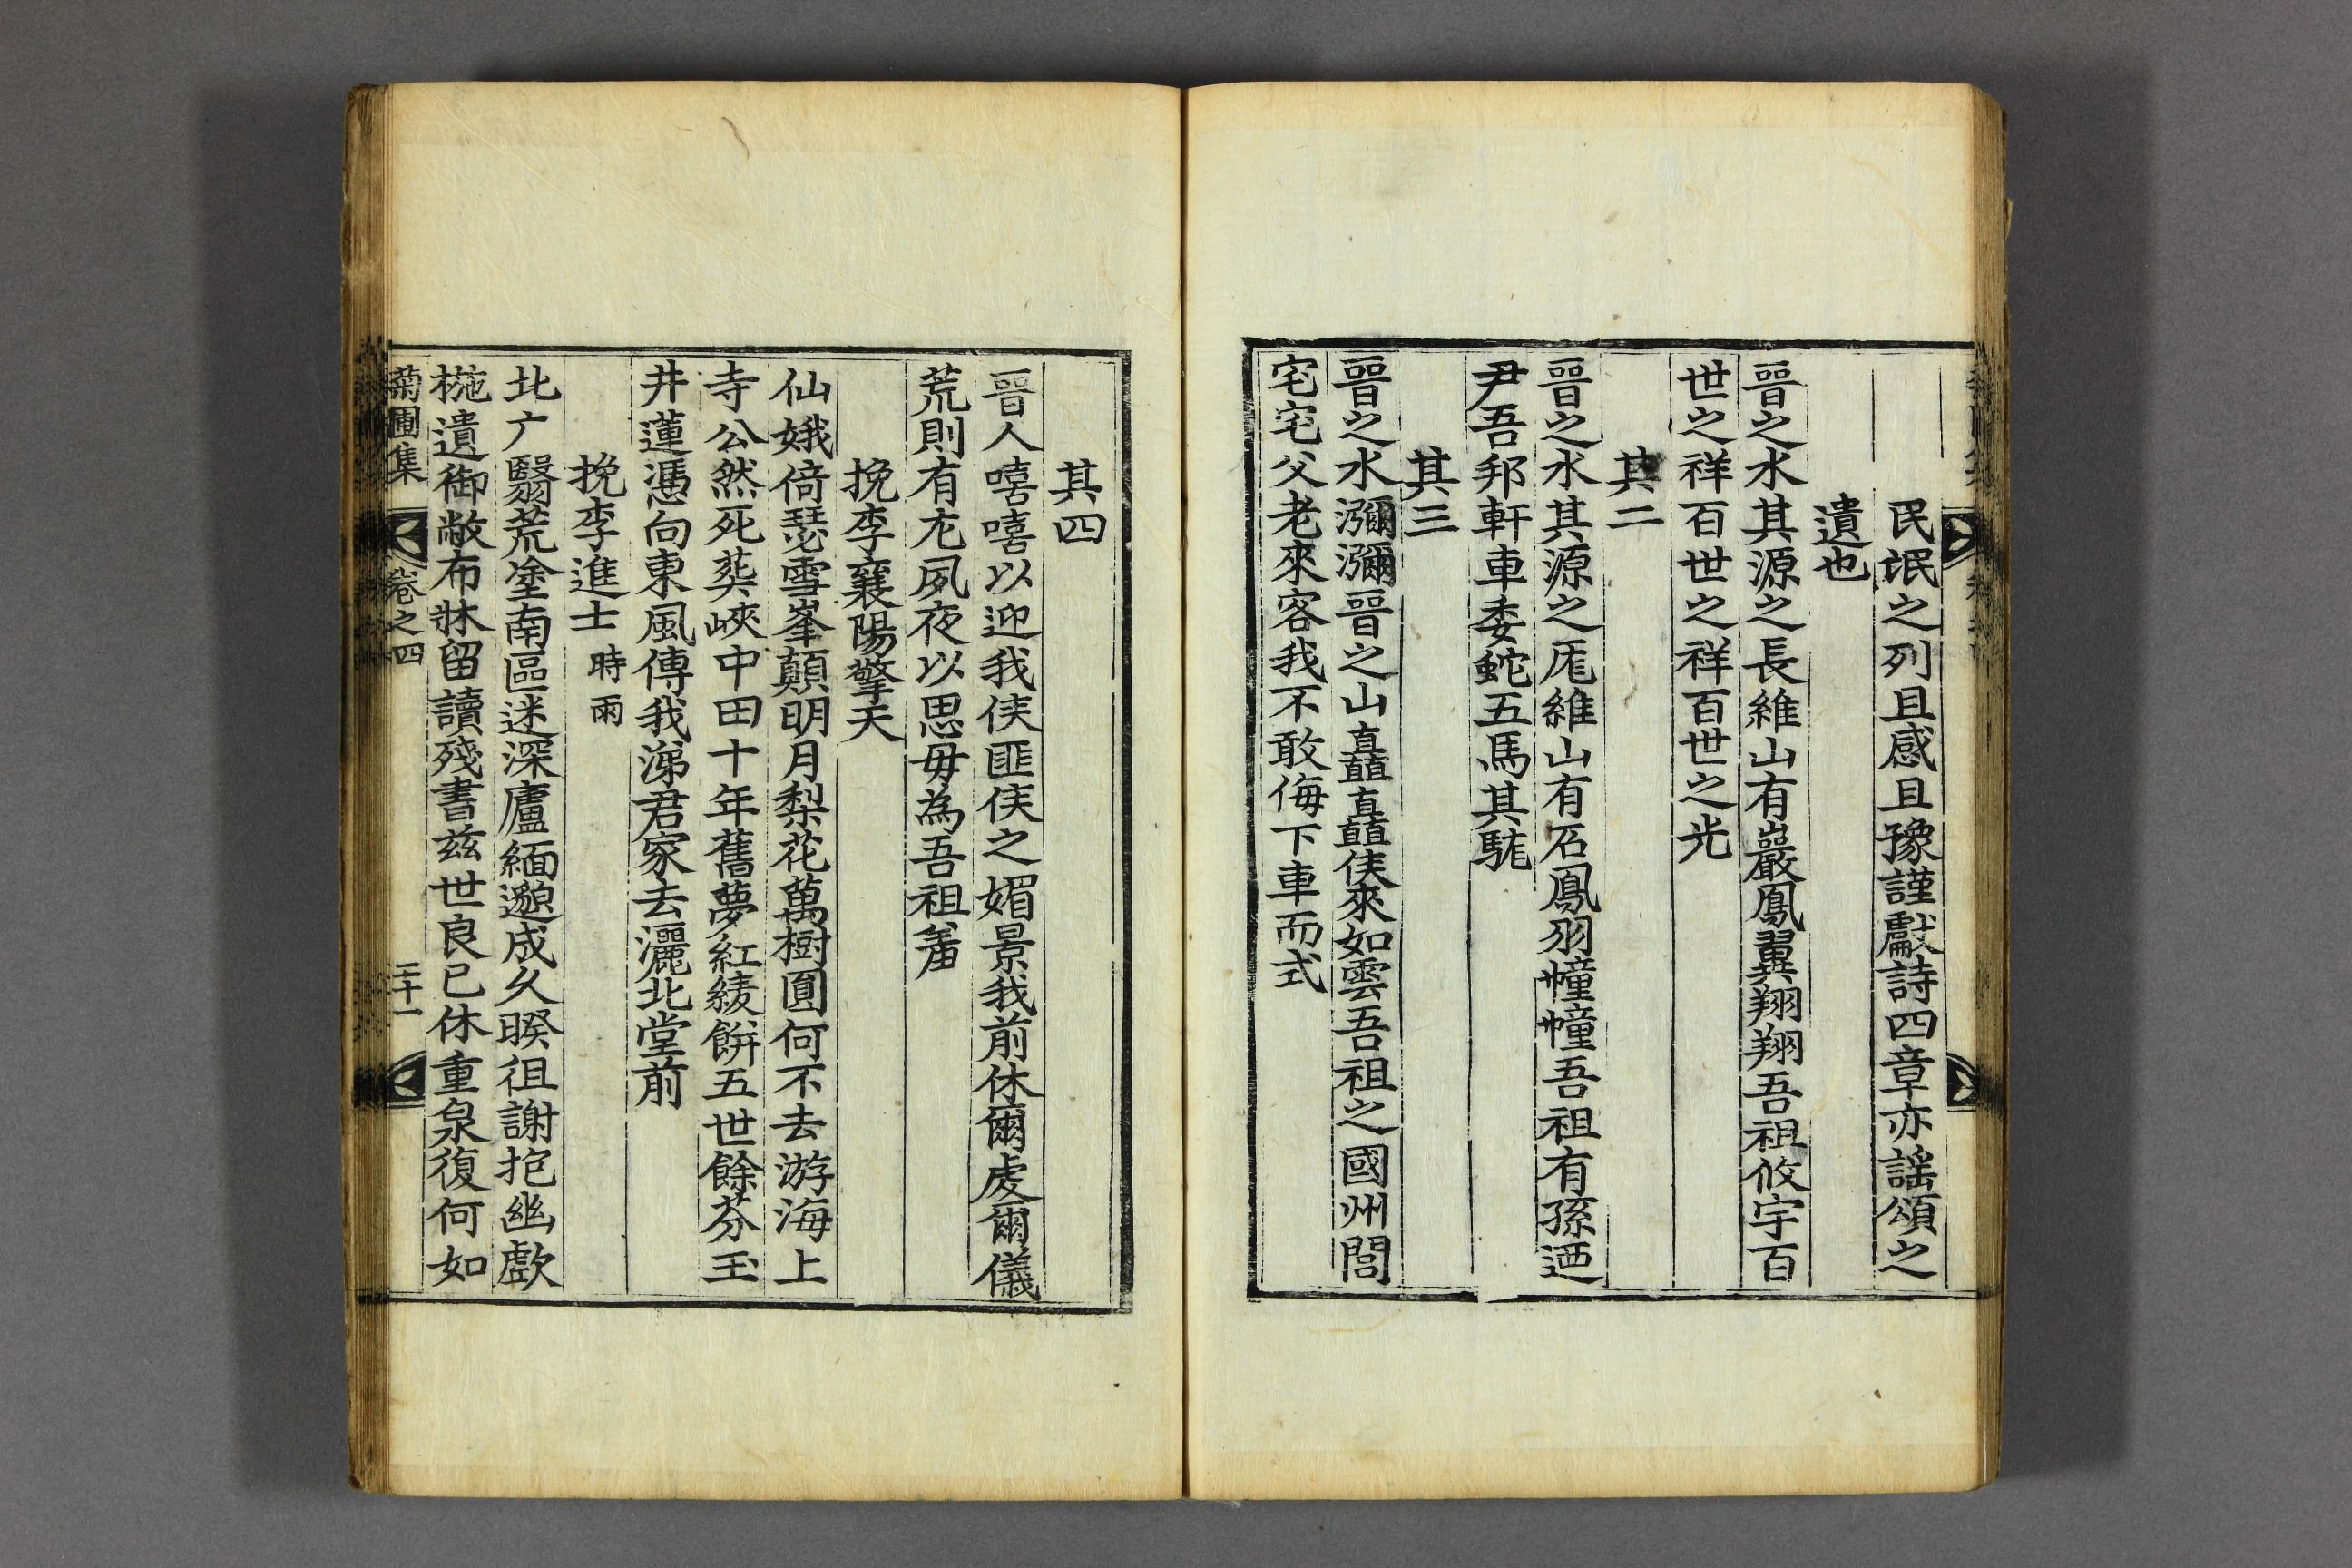 民氓之列且感且豫謹獻詩四章亦謠頌之
遺也
晉之水其源之長維山有巖鳳翼翔翔吾祖攸宇百
世之祥百世之祥百世之光
其二
晉之水其源之厖維山有石鳳羽幢幢吾祖有孫迺
尹吾邦軒車委蛇五馬其駹
其三
晉之水瀰瀰晉之山矗矗侯來如雲吾祖之國州閭
宅宅父老來客我不敢侮下車而式
其四
晉人嘻嘻以迎我侯匪侯之媚景我前休爾處爾儀
荒則有尤夙夜以思毋為吾祖羞
挽李襄陽擎天
仙娥倚瑟雪峯顛明月梨花萬樹圓何不去游海上
寺公然死葬峽中田十年舊夢紅綾餠五世餘芬玉
井蓮憑向東風傳我涕君家去灑北堂前
挽李進士 時雨
北广翳荒塗南區迷深廬緬邈成久暌徂謝抱幽歔
椸遺御敝布牀留讀殘書兹世良已休重泉復何如
菊圃集 卷之四 二十一